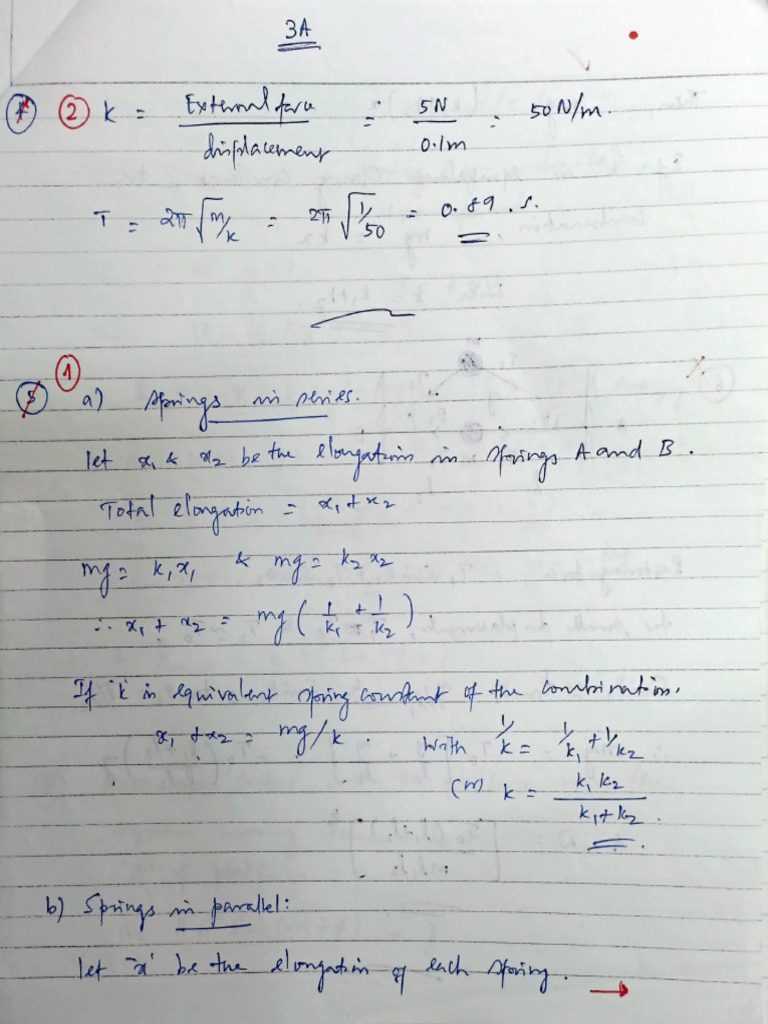 3A
② k = External force / displacement = 5N / 0.1m = 50 N/m.
T = 2π √m/k = 2π √1/50 = 0.89 . s.
①
a) Springs in series.
let x₁ & x₂ be the elongations in springs A and B.
Total elongation = x₁ + x₂
mg = k₁x₁ & mg = k₂x₂
∴ x₁ + x₂ = mg ( 1/k₁ + 1/k₂ ).
If 'k' is equivalent spring constant of the combination.
x₁ + x₂ = mg/k . with 1/k = 1/k₁ + 1/k₂
(or) k = k₁k₂ / k₁+k₂ .
b) Springs in parallel:
let 'x' be the elongation of each spring. →